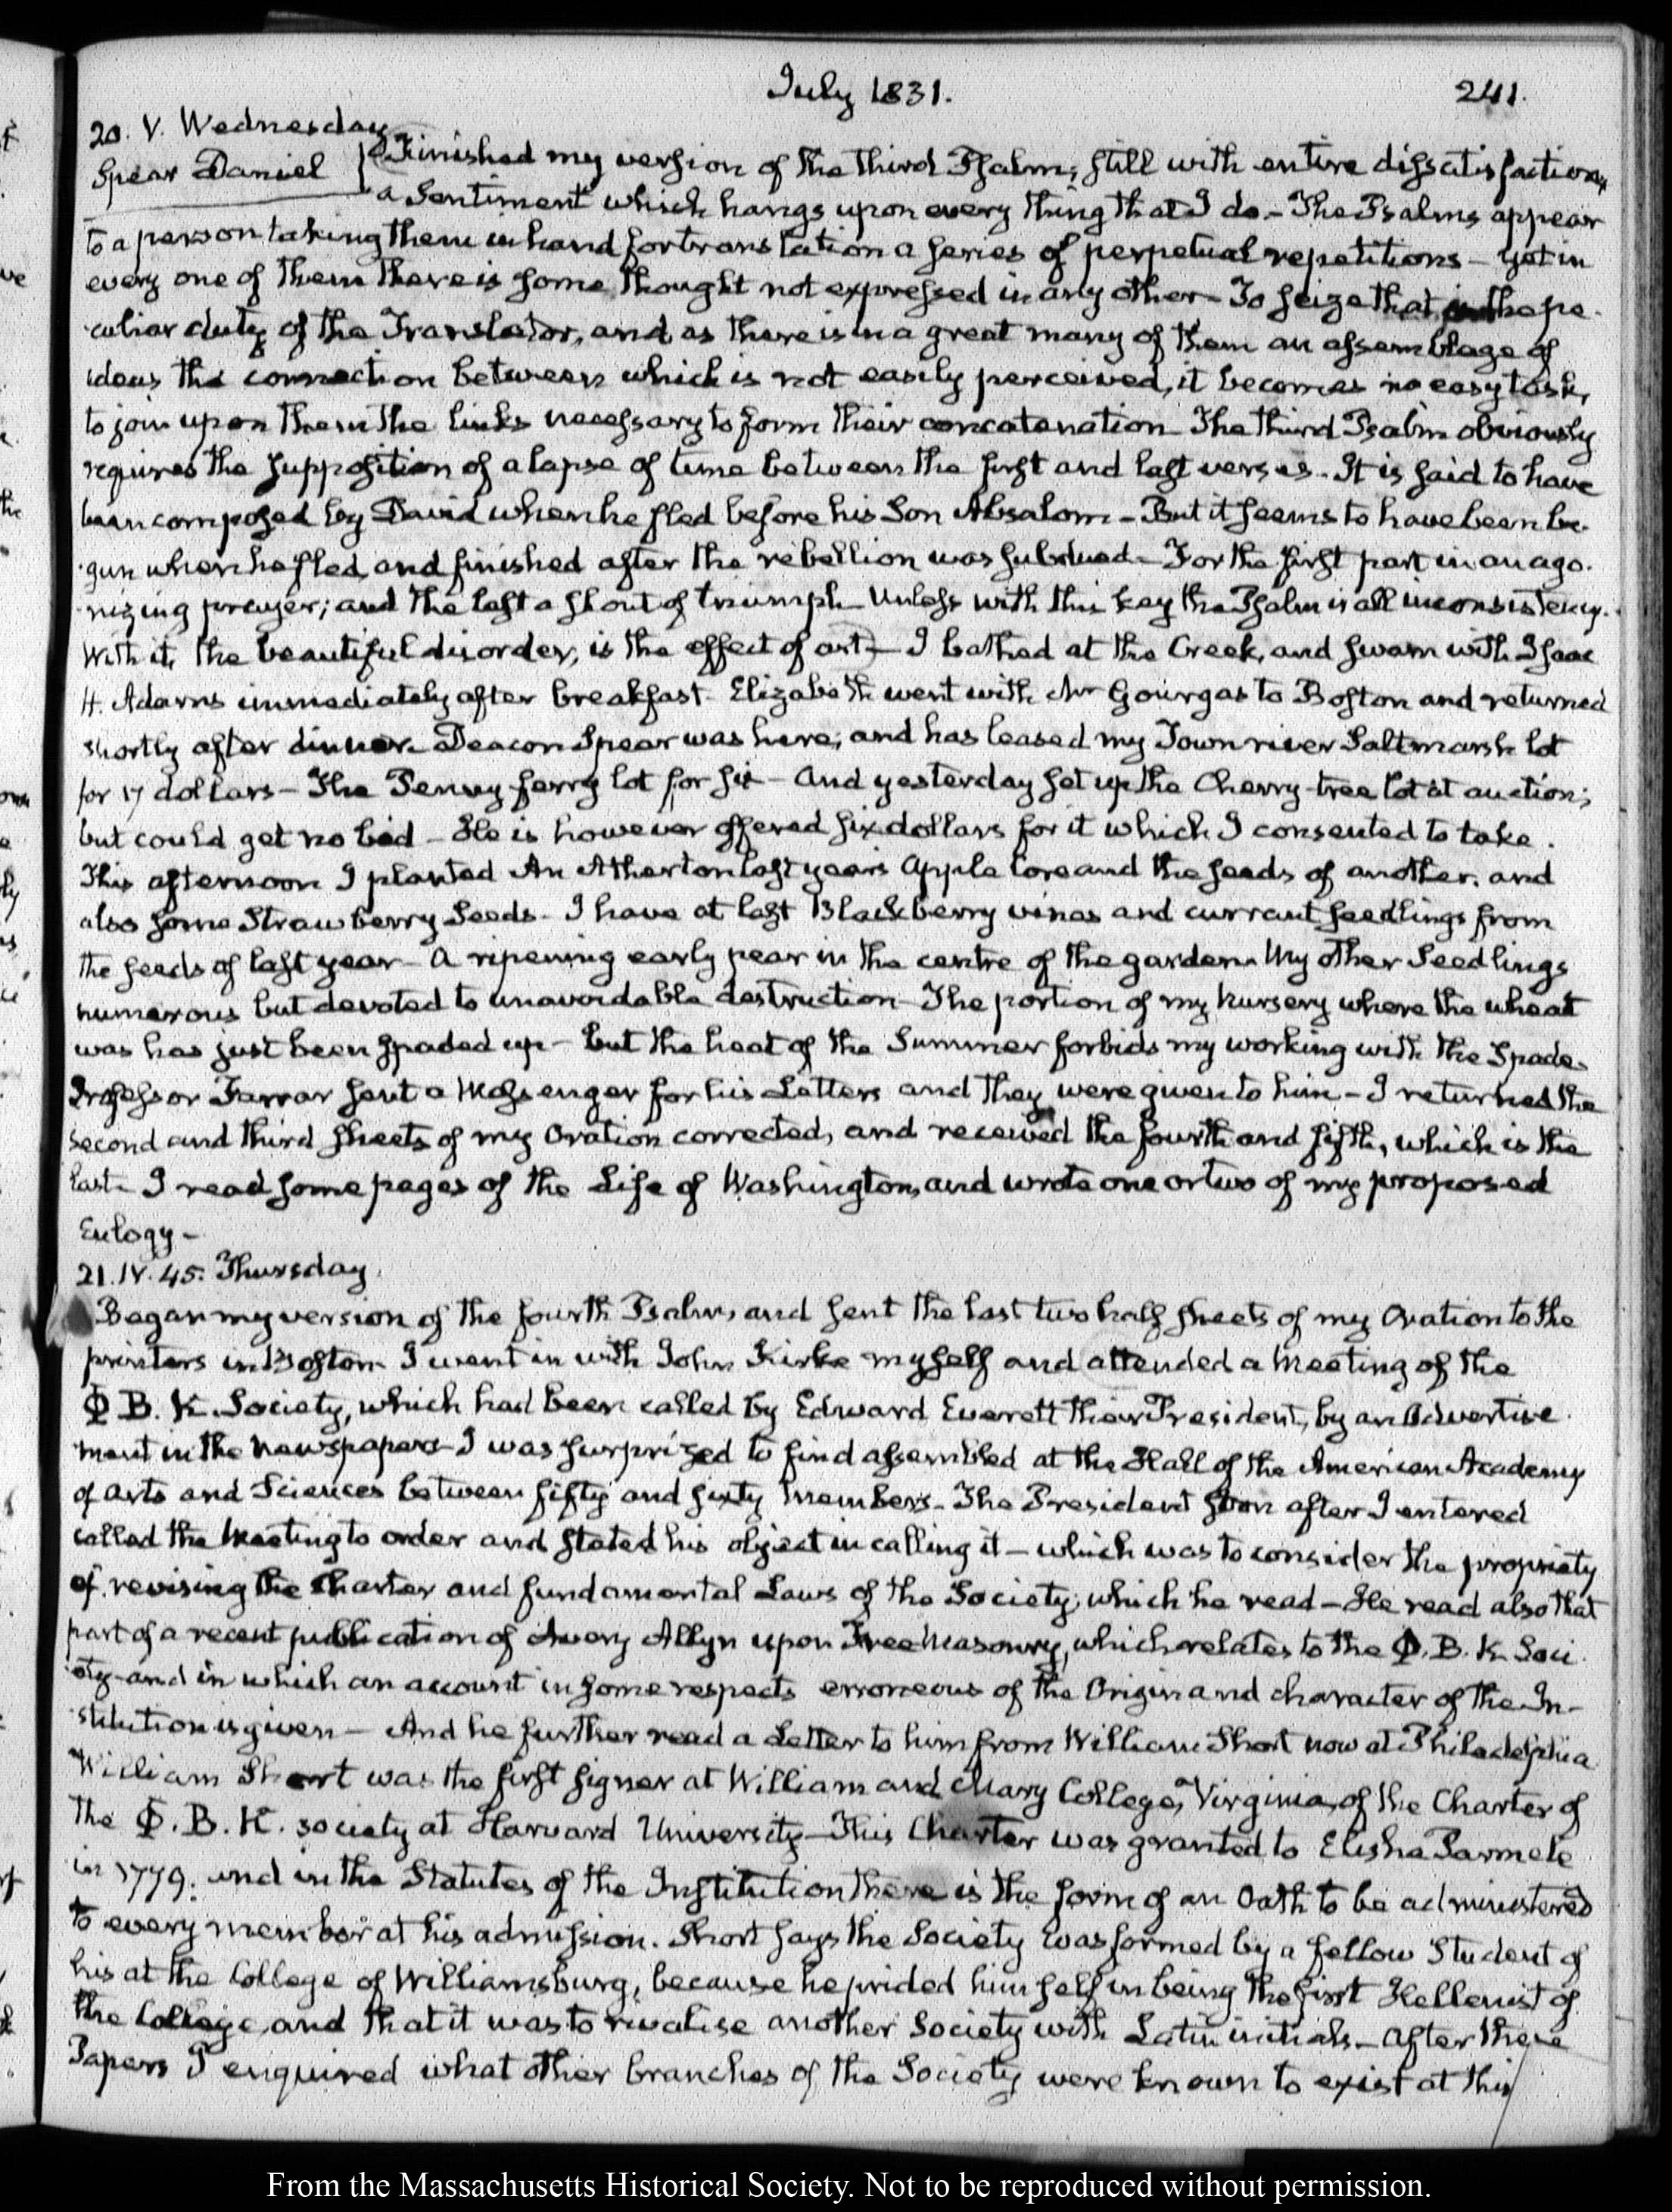 July 1831.
241.
20. V. Wednesday
Spear Daniel
Finished my version of the third Psalm; still with entire dissatisfaction,
a Sentiment which hangs upon every thing that I do - The Psalms appear
to a person taking them in hand for translation a series of perpetual repetitions - yet in
every one of them there is some thought not expressed in any other - To seize that is the pe-
culiar duty of the Translator, and as there is in a great many of them an assemblage of
ideas the connection between which is not easily perceived, it becomes no easy task,
to join upon them the links necessary to form their concatenation - The third Psalm obviously
requires the supposition of a lapse of time between the first and last verses. It is said to have
been composed by David when he fled before his Son Absalom - But it seems to have been be-
gun when he fled, and finished after the rebellion was subdued - For the first part is an ago-
nizing prayer; and the last a shout of triumph - Unless with this key the Psalm is all inconsistency.
With it, the beautiful disorder, is the effect of art - I bathed at the Creek, and swam with Isaac
H. Adams immediately after breakfast. Elizabeth went with Mr Gourgas to Boston and returned
shortly after dinner. Deacon Spear was here; and has leased my Town river Saltmarsh lot
for 17 dollars - The Penny-ferry lot for six - And yesterday set up the Cherry-tree lot at auction;
but could get no bid - He is however offered six dollars for it which I consented to take.
This afternoon I planted An Atherton last years Apple Core and the seeds of another, and
also some Strawberry Seeds - I have at last Blackberry vines and currant seedlings from
the seeds of last year - A ripening early pear in the centre of the garden. My other Seedlings
numerous but devoted to unavoidable destruction - The portion of my Nursery where the wheat
was has just been spaded up - but the heat of the Summer forbids my working with the Spade.
Professor Farrar sent a Messenger for his Letters and they were given to him - I returned the
second and third sheets of my Oration corrected, and received the fourth and fifth, which is the
last. I read some pages of the Life of Washington, and wrote one or two of my proposed
Eulogy -
21. IV. 45. Thursday.
Began my version of the fourth Psalm, and sent the last two half sheets of my Oration to the
printers in Boston - I went in with John Kirke myself and attended a Meeting of the
Φ B. K. Society, which had been called by Edward Everett their President, by an Advertise-
ment in the Newspapers - I was surprized to find assembled at the Hall of the American Academy
of Arts and Sciences between fifty and sixty members - The President soon after I entered
called the Meeting to order and stated his object in calling it - which was to consider the propriety
of revising the Charter and fundamental Laws of the Society, which he read - He read also that
part of a recent publication of Avery Allyn upon Free Masonry, which relates to the Φ. B. K. Soci-
ety and in which an account in some respects erroneous of the Origin and character of the In-
stitution is given - And he further read a Letter to him from William Short now at Philadelphia
William Short was the first signer at William and Mary College, Virginia, of the Charter of
the Φ. B. K. society at Harvard University - This Charter was granted to Elisha Parmele
in 1779. and in the Statutes of the Institution there is the form of an Oath to be administered
to every member at his admission. Short says the Society was formed by a fellow Student of
his at the College of Williamsburg, because he prided himself in being the first Hellenist of
the College, and that it was to rivalise another Society with Latin initials - After these
Papers I enquired what other branches of the Society were known to exist at this
From the Massachusetts Historical Society. Not to be reproduced without permission.